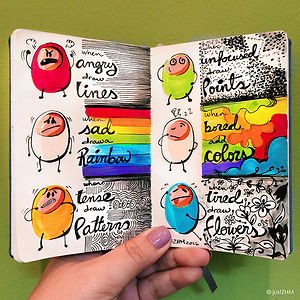 when
angry
draw
lines
when
sad
draw a
Rainbow
when
tense
draw
Patterns
when
unfocused
draw
Points
when
bored
add
colors
when
tired
draw
flowers
© justZHM